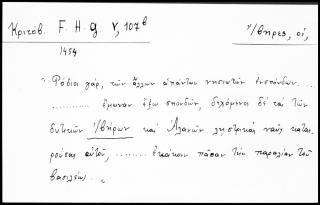 Κριτόβ. F. H. G. V, 107ᵇ
Ἴβηρες, οἱ,
1454
"Ῥόδιοι γάρ, τῶν ἄλλων ἁπάντων νησιωτῶν ἐνσπόνδων...
........... ἔμεναν ἔξω σπονδῶν, δεχόμενοι δὲ τὰ τῶν
δυτικῶν Ἰβήρων καὶ Ἀλανῶν λῃστρικὰ ναῦς κατα
ροῦσαι αὐτοῦ, ......... ἐκάκουν πᾶσαν τὴν παραλίαν τοῦ
βασιλέως.„